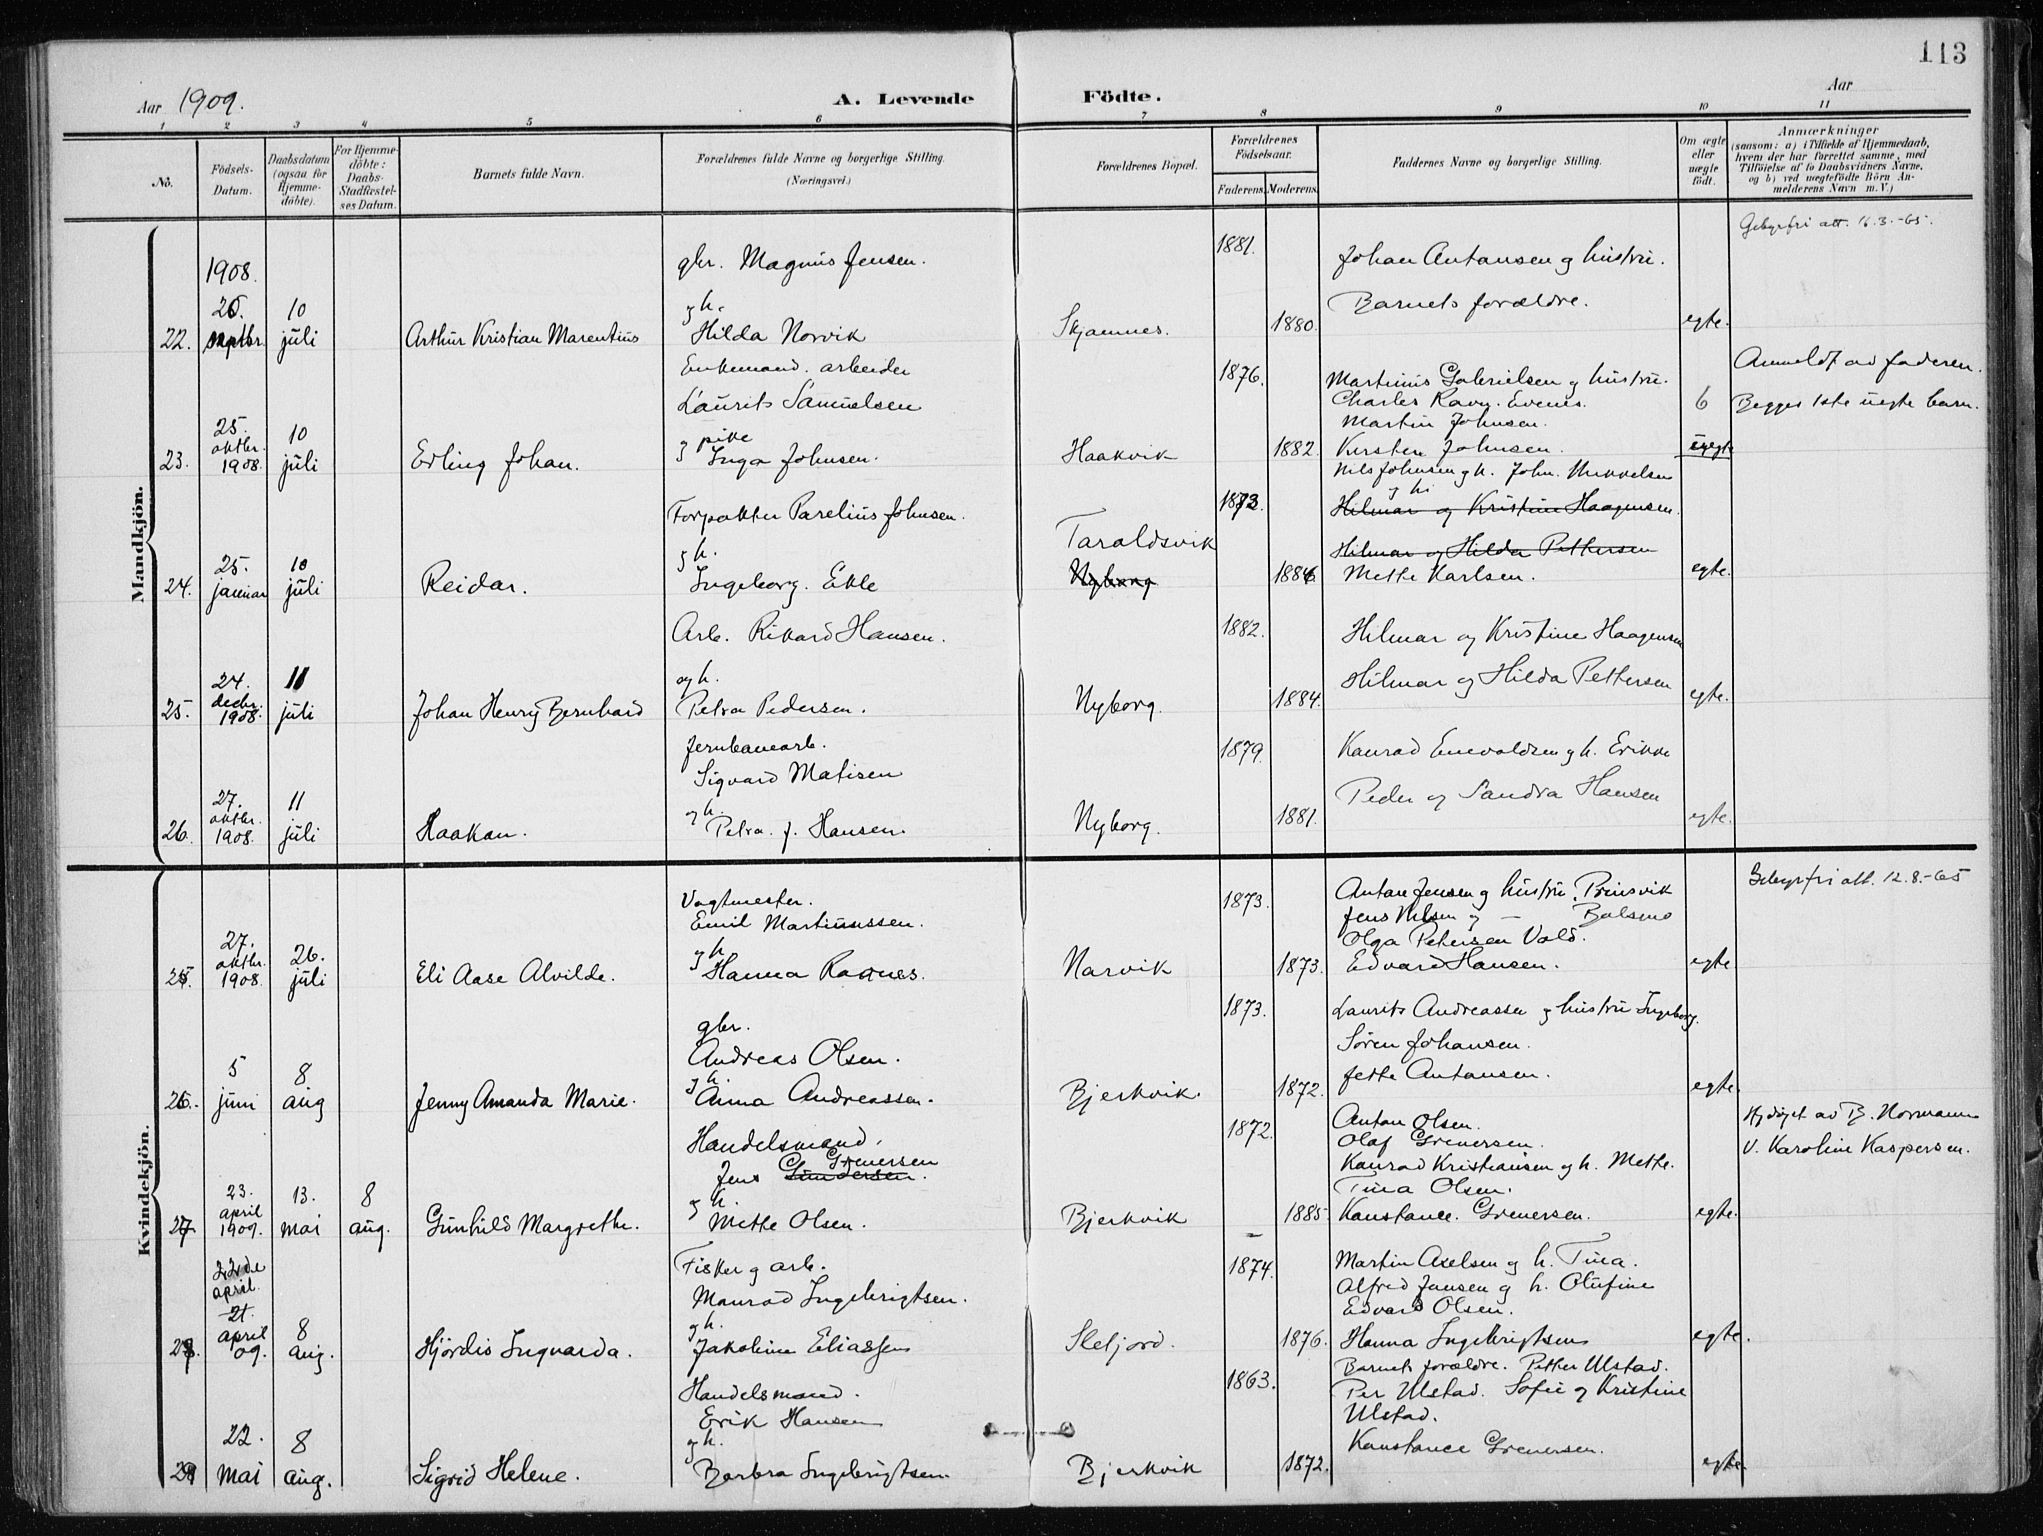 113
Aar 1909.
A. Levende Födte.
Aar
1 2 3 4 5 6 7 8 9 10 11
No.
Födsels-
Datum.
Daabsdatum
(ogsaa for
Hjemme-
döbte).
For Hjemme-
döbte:
Daabs-
Stadfæstel-
ses Datum.
Barnets fulde Navn.
Forældrenes fulde Navne og borgerlige Stilling.
(Næringsvei.)
Forældrenes Bopæl.
Forældrenes
Födselsaar.
Faderens.
Moderens.
Faddernes Navne og borgerlige Stilling.
Om ægte
eller
uægte
födt.
Anmærkninger
(saasom: a) i Tilfælde af Hjemmedaab,
hvem der har forrettet samme, med
Tilföielse af to Daabsvidners Navne,
og b) ved uægtefödte Börn An-
melderens Navn m. V.)
Mandkjön.
Gebyrfri att. 16.3.-65.
1908.
gbr. Magnus Jensen.
1881.
Johan Antonsen og hustru.
26.
10
g h.
Barnets forældre.
22. septbr. juli
Arthur Kristian Marentius
Hilda Norvik
Skjomnes.
1880.
egte.
Enkemand. arbeider
1876.
Martinus Gabrielsen g hustru.
Anmeldt av faderen.
Laurits Samuelsen
Charles Ravn. Evenes.
6
Begges 1ste uegte barn.
25.
10
g pike
Martin Johnsen.
23. oktbr. 1908. juli
Erling Johan.
Inga Johnsen.
Haakvik
1882.
Kirsten Johnsen.
uegte
Nils Johnsen g h. John. Mikkelsen
g h
Forpakter Parelius Johnsen.
1873.
Hilmar og Kristine Haagensen.
g h.
Taraldsvik
Hilmar og Hilda Pettersen
25. 10
24. januar juli
Reidar.
Ingeborg. Ekle
Nyborg
1886
Mette Karlsen.
egte.
Arb. Rikard Hansen.
1882.
Hilmar og Kristine Haagensen
24. 11
og h.
Hilmar og Hilda Pettersen
25. decbr. 1908. juli
Johan Henry Bernhard
Petra Pedersen.
Nyborg.
1884.
egte.
Jernbanearb.
1879.
Konrad Enevoldsen g h. Erikke
Sigvard Matisen
Peder og Sandra Hansen
27. 11
g h.
26. oktbr. 1908. juli
Haakon.
Petra. J. Hansen.
Nyborg.
1881.
egte.
Kvindekjön.
Gebyrfri att. 12.8.-65
Vagtmester.
1873.
Anton Jensen g hustru. Prinsvik
Emil Martinussen.
Jens Nilsen g — Balsnes
27. 26.
g h
Olga Petersen Vold.
25. oktbr. 1908. juli
Eli Aase Alvilde.
Hanna Raanes.
Narvik
1873.
Edvard Hansen.
egte
gbr.
1873.
Laurits Andreassen g hustru Ingeborg.
Andreas Olsen.
Sören Johansen.
5 8
g h.
Jette Antonsen.
26. juni aug
Jenny Amanda Marie.
Anna Andreassen.
Bjerkvik.
1872.
egte.
Handelsmand.
1872.
Anton Olsen.
Hjdöpt av B. Normann
Grenersen
Olaf Grenersen.
v. Karoline Kaspersen.
Jens Gundersen.
Konrad Kristiansen g h. Mette.
23. 13. 8
g h.
Tina Olsen.
27. april 1909. mai aug.
Gunhild Margrethe.
Mette Olsen.
Bjerkvik
1885.
Konstance. Grenersen.
egte.
22de april.
Fisker g arb.
1874.
Martin Axelsen g h. Tina.
Monrad Ingebrigtsen.
Alfred Jensen g h. Olufine
21. 8
g h.
Edvard Olsen.
28. april 09. aug.
Hjördis Ingvarda.
Jakobine Eliassen
Sletjord.
1876.
Hanna Ingebrigtsen
egte.
Handelsmand.
1863.
Barnets forældre. Petter Ulstad.
Erik Hansen
Per Ulstad. Sofie g Kristine
22. 8
g h.
Ulstad.
29 mai aug.
Sigrid Helene.
Berbra Ingebrigtsen
Bjerkvik
1872.
Konstance Grenersen.
egte.